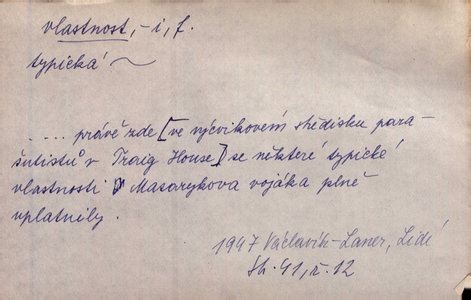 vlastnost, -i, f.
typická ~
.... právě zde [ve výcvikovém středisku para-
šutistů v Traig House] se některé typické
vlastnosti Masarykova vojáka plně
uplatnily.
1947 Václavík-Laner, Lidé
Sh. 41, ř. 12